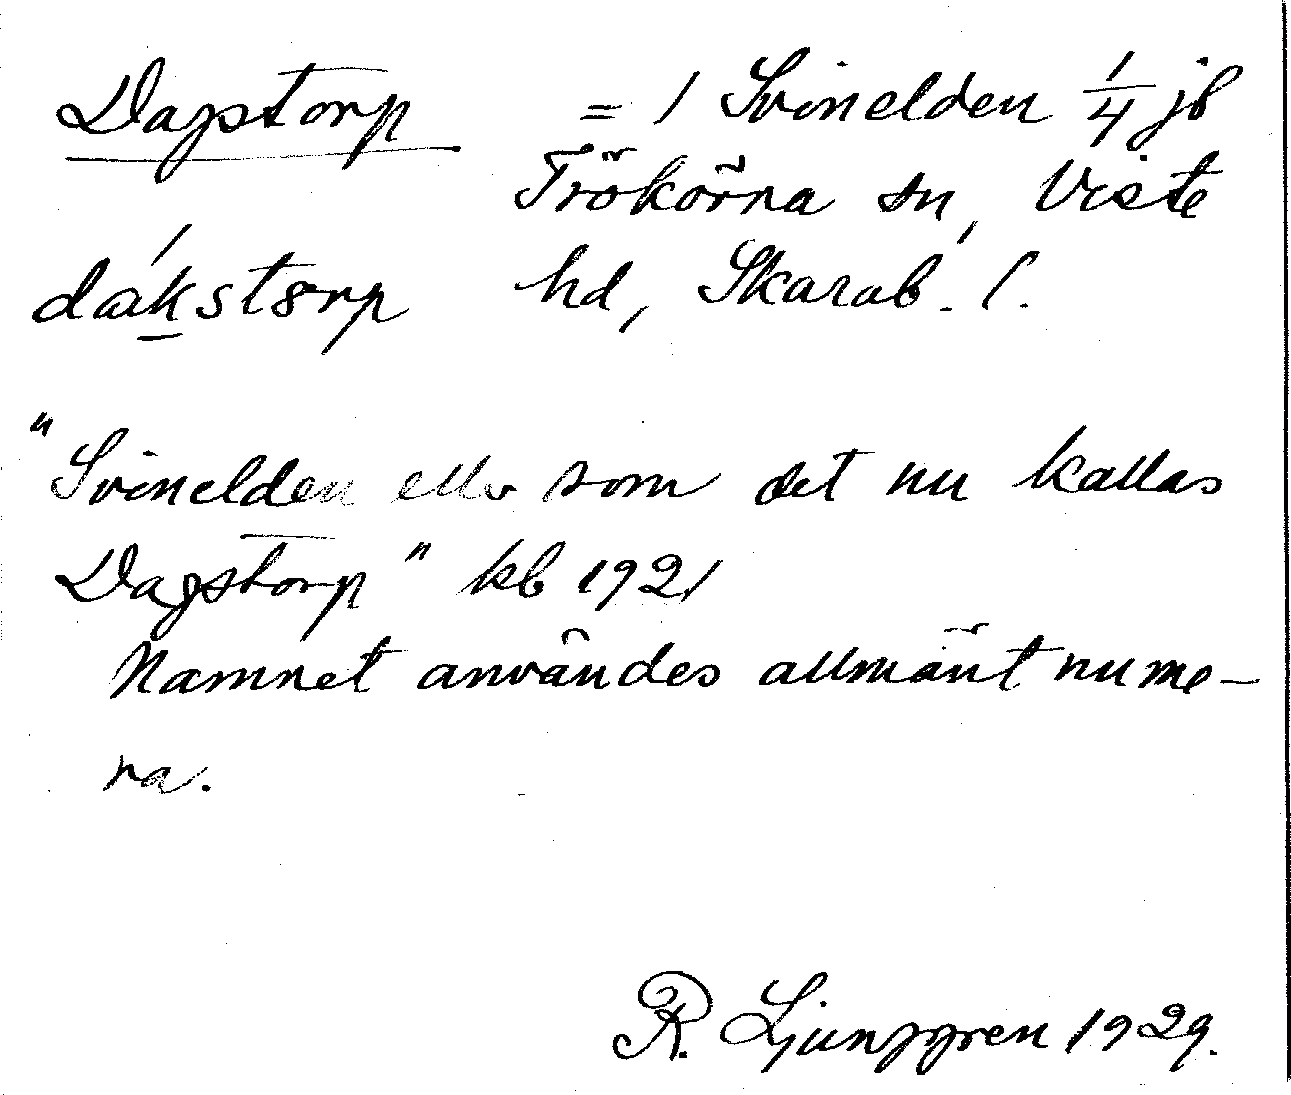 Dagstorp = 1 Svinelden 1/4 jb
Trökörna sn, Viste
dákstorp hd, Skarab. l.
"Svinelden eller som det nu kallas
Dagstorp" kb 1921
Namnet användes allmänt nume-
ra.
R. Ljunggren 1929.